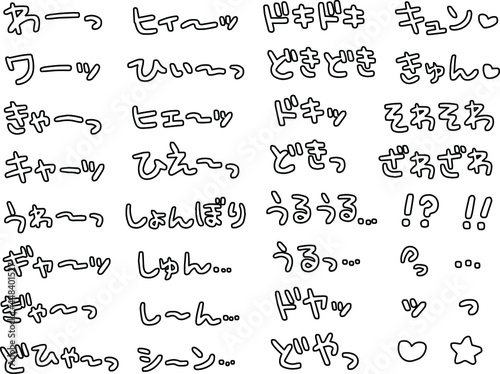 わーっ ヒィ〜ッ ドキドキ キュン♡
ワーッ ひぃ〜っ どきどき きゅん♡
きゃーっ ヒェ〜ッ ドキッ そわそわ
キャーッ ひえ〜っ どきっ ざわざわ
うわ〜っ しょんぼり うるうる… !? !!
ギャ〜ッ しゅん… うるっ… …
ぎゃ〜っ し〜ん… ドヤッ ッ っ
どひゃ〜っ シーン… どやっ ♡ ☆